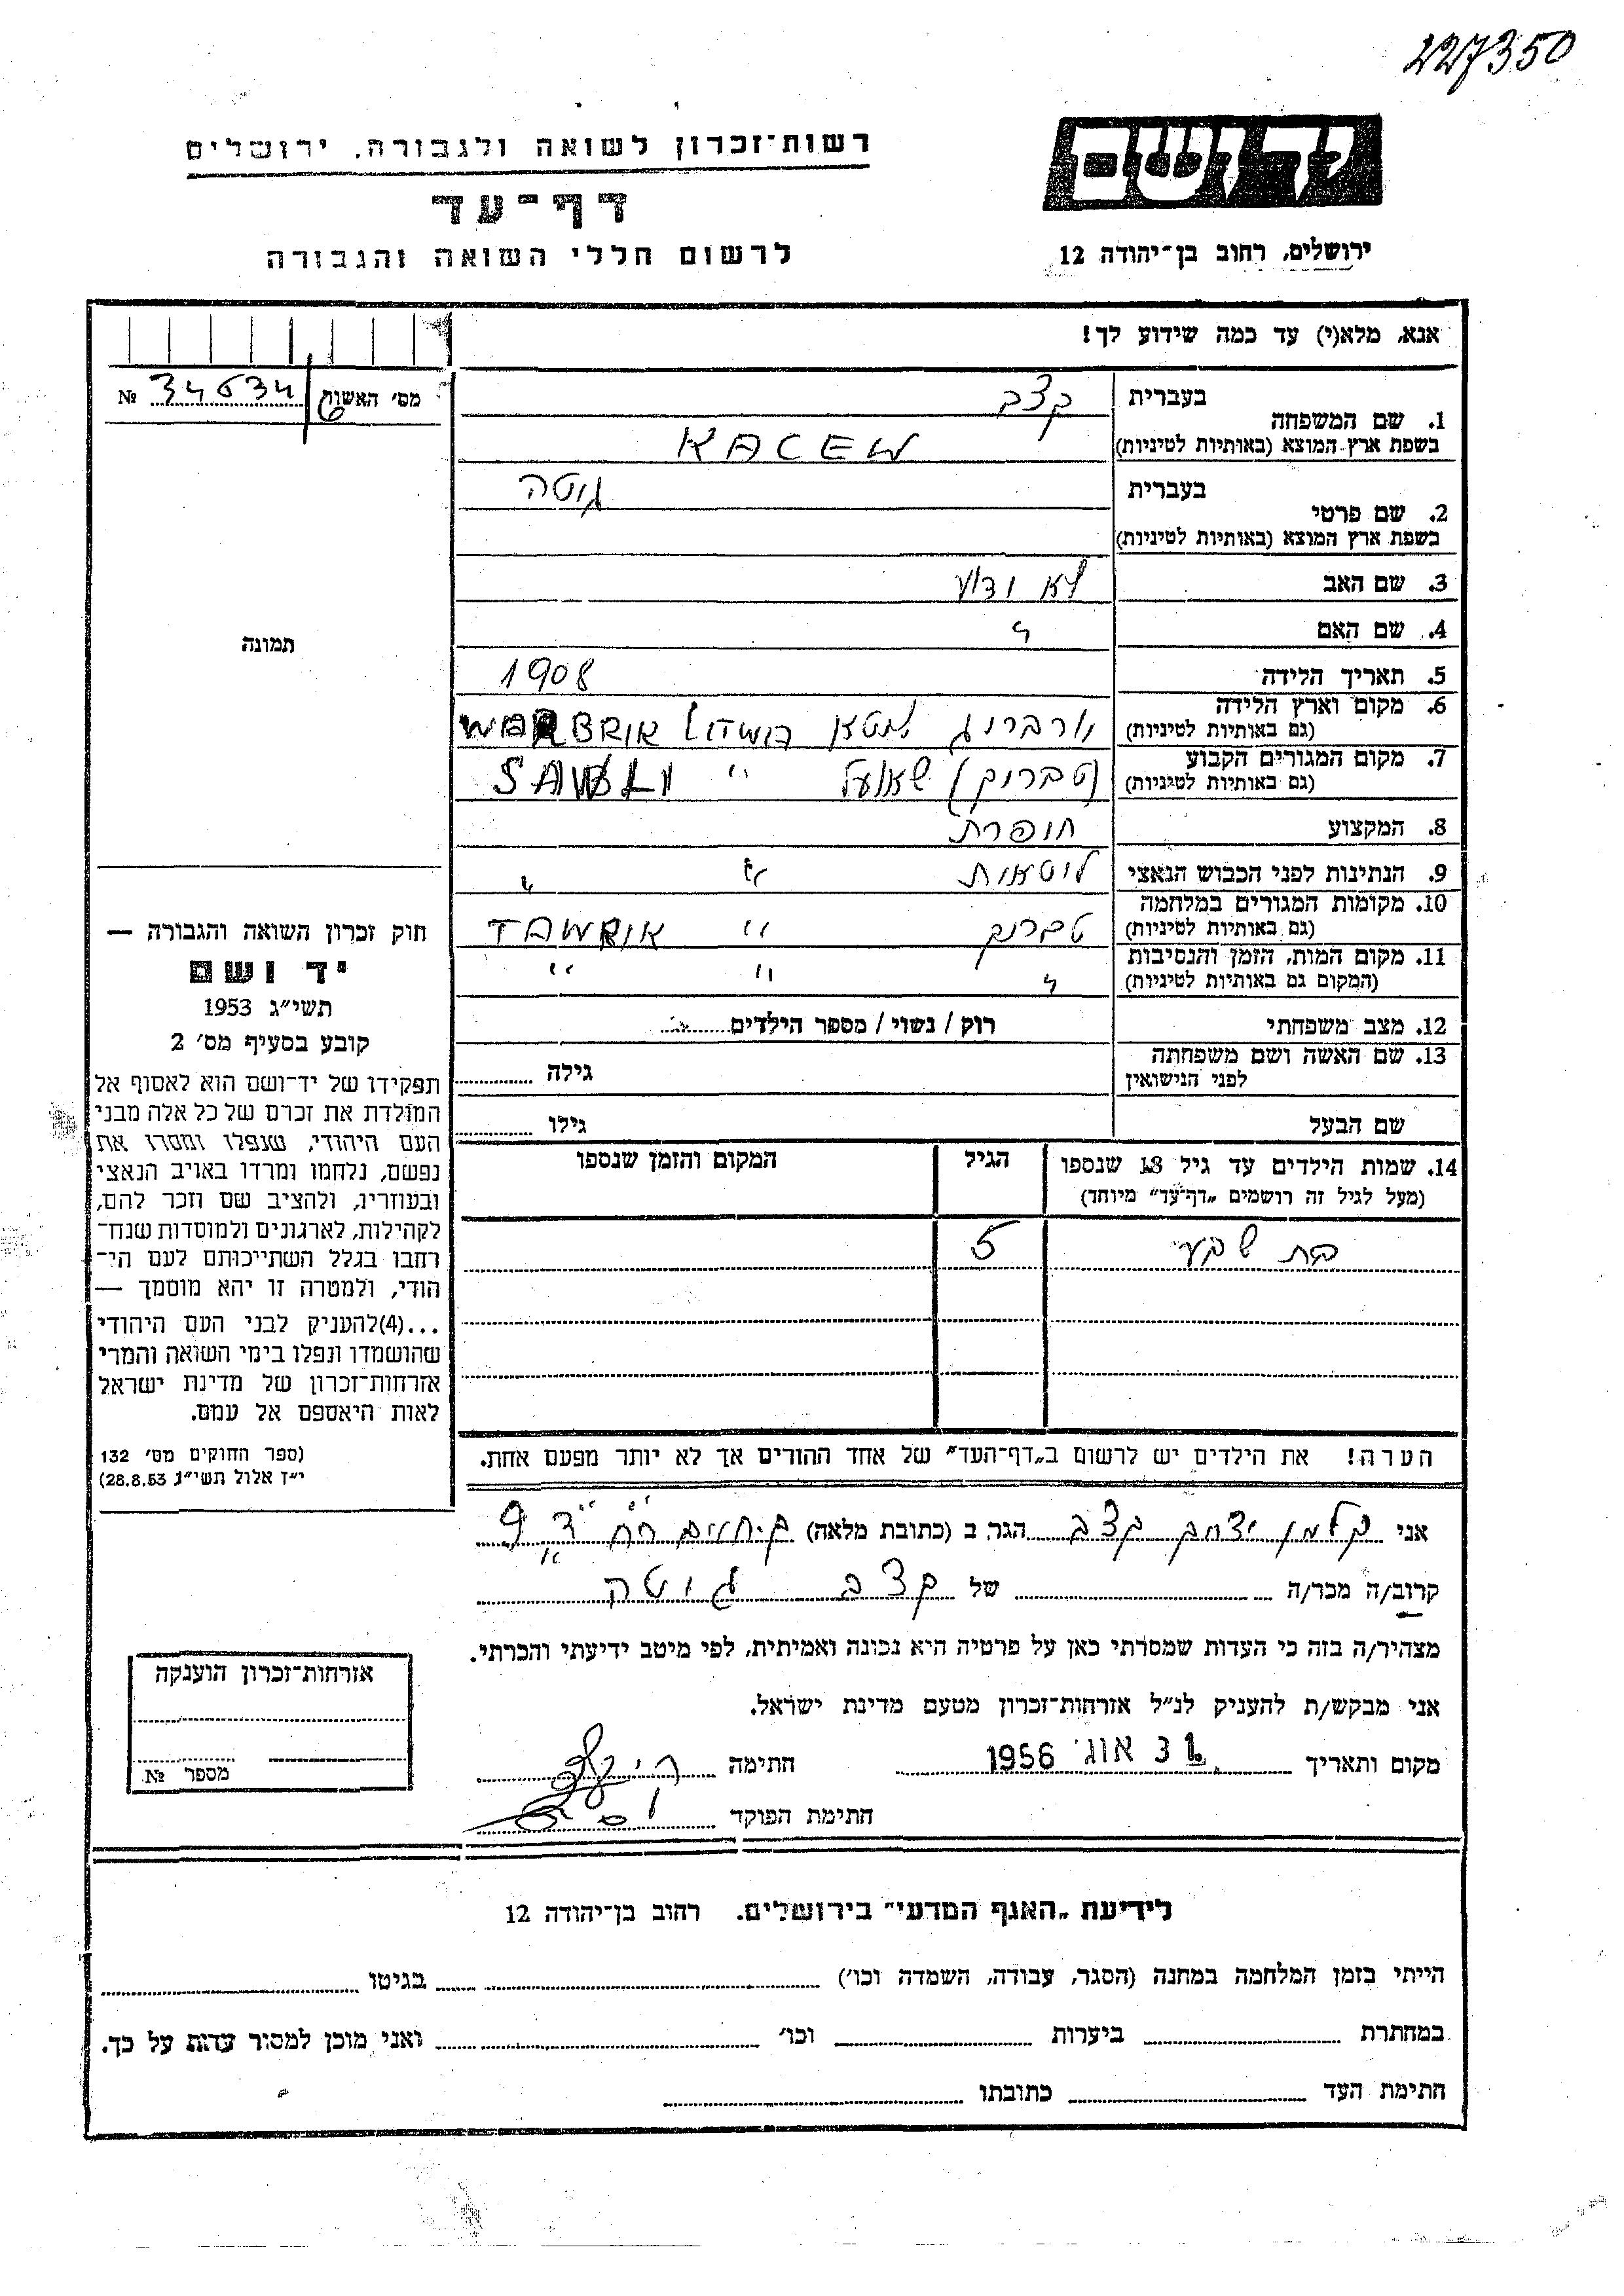 227350
יד ושם
רשות־זכרון לשואה ולגבורה, ירושלים
דף־עד
לרשום חללי השואה והגבורה
ירושלים, רחוב בן־יהודה 12
אנא, מלא(י) עד כמה שידוע לך!
מס׳ האשות № 34634
1. שם המשפחה בעברית קצב
בשפת ארץ המוצא (באותיות לטיניות) KACEW
2. שם פרטי בעברית גוטה
בשפת ארץ המוצא (באותיות לטיניות)
3. שם האב לא ידוע
4. שם האם "
5. תאריך הלידה 1908
6. מקום וארץ הלידה
(גם באותיות לטיניות) WARBRIK
7. מקום המגורים הקבוע
(גם באותיות לטיניות) " SAWLI
8. המקצוע תופרת
9. הנתינות לפני הכבוש הנאצי " "
10. מקומות המגורים במלחמה
(גם באותיות לטיניות) " TAWRIK
11. מקום המות, הזמן והנסיבות
(המקום גם באותיות לטיניות) " " "
12. מצב משפחתי רוק / נשוי / מספר הילדים
13. שם האשה ושם משפחתה
לפני הנישואין גילה
שם הבעל גילו
14. שמות הילדים עד גיל 18 שנספו הגיל המקום והזמן שנספו
(מעל לגיל זה רושמים „דף־עד” מיוחד)
בת שבע 5
הערה! את הילדים יש לרשום ב„דף־העד” של אחד ההורים אך לא יותר מפעם אחת.
תמונה
חוק זכרון השואה והגבורה —
יד ושם
תשי״ג 1953
קובע בסעיף מס׳ 2
תפקידו של יד־ושם הוא לאסוף אל
המולדת את זכרם של כל אלה מבני
העם היהודי, שנפלו ומסרו את
נפשם, נלחמו ומרדו באויב הנאצי
ובעוזריו, ולהציב שם וזכר להם,
לקהילות, לארגונים ולמוסדות שנח־
רחבו בגלל השתייכותם לעם הי־
הודי, ולמטרה זו יהא מוסמך —
...(4)להעניק לבני העם היהודי
שהושמדו ונפלו בימי השואה והמרי
אזרחות־זכרון של מדינת ישראל
לאות היאספם אל עמם.
(ספר החוקים מס׳ 132
י״ז אלול תשי״ג 28.8.53)
אני קלמן יצחק קצב הגר ב (כתובת מלאה)
קרוב/ה מכר/ה של קצב גוטה
מצהיר/ה בזה כי העדות שמסרתי כאן על פרטיה היא נכונה ואמיתית, לפי מיטב ידיעתי והכרתי.
אני מבקש/ת להעניק לנ״ל אזרחות־זכרון מטעם מדינת ישראל.
מקום ותאריך 31 אוג׳ 1956 חתימה
חתימת הפוקד
אזרחות־זכרון הוענקה
מספר №
לידיעת „האגף המדעי” בירושלים, רחוב בן־יהודה 12
הייתי בזמן המלחמה במחנה (הסגר, עבודה, השמדה וכו׳) בגיטו
במחתרת ביערות וכו׳ ואני מוכן למסור עדות על כך.
חתימת העד כתובתו